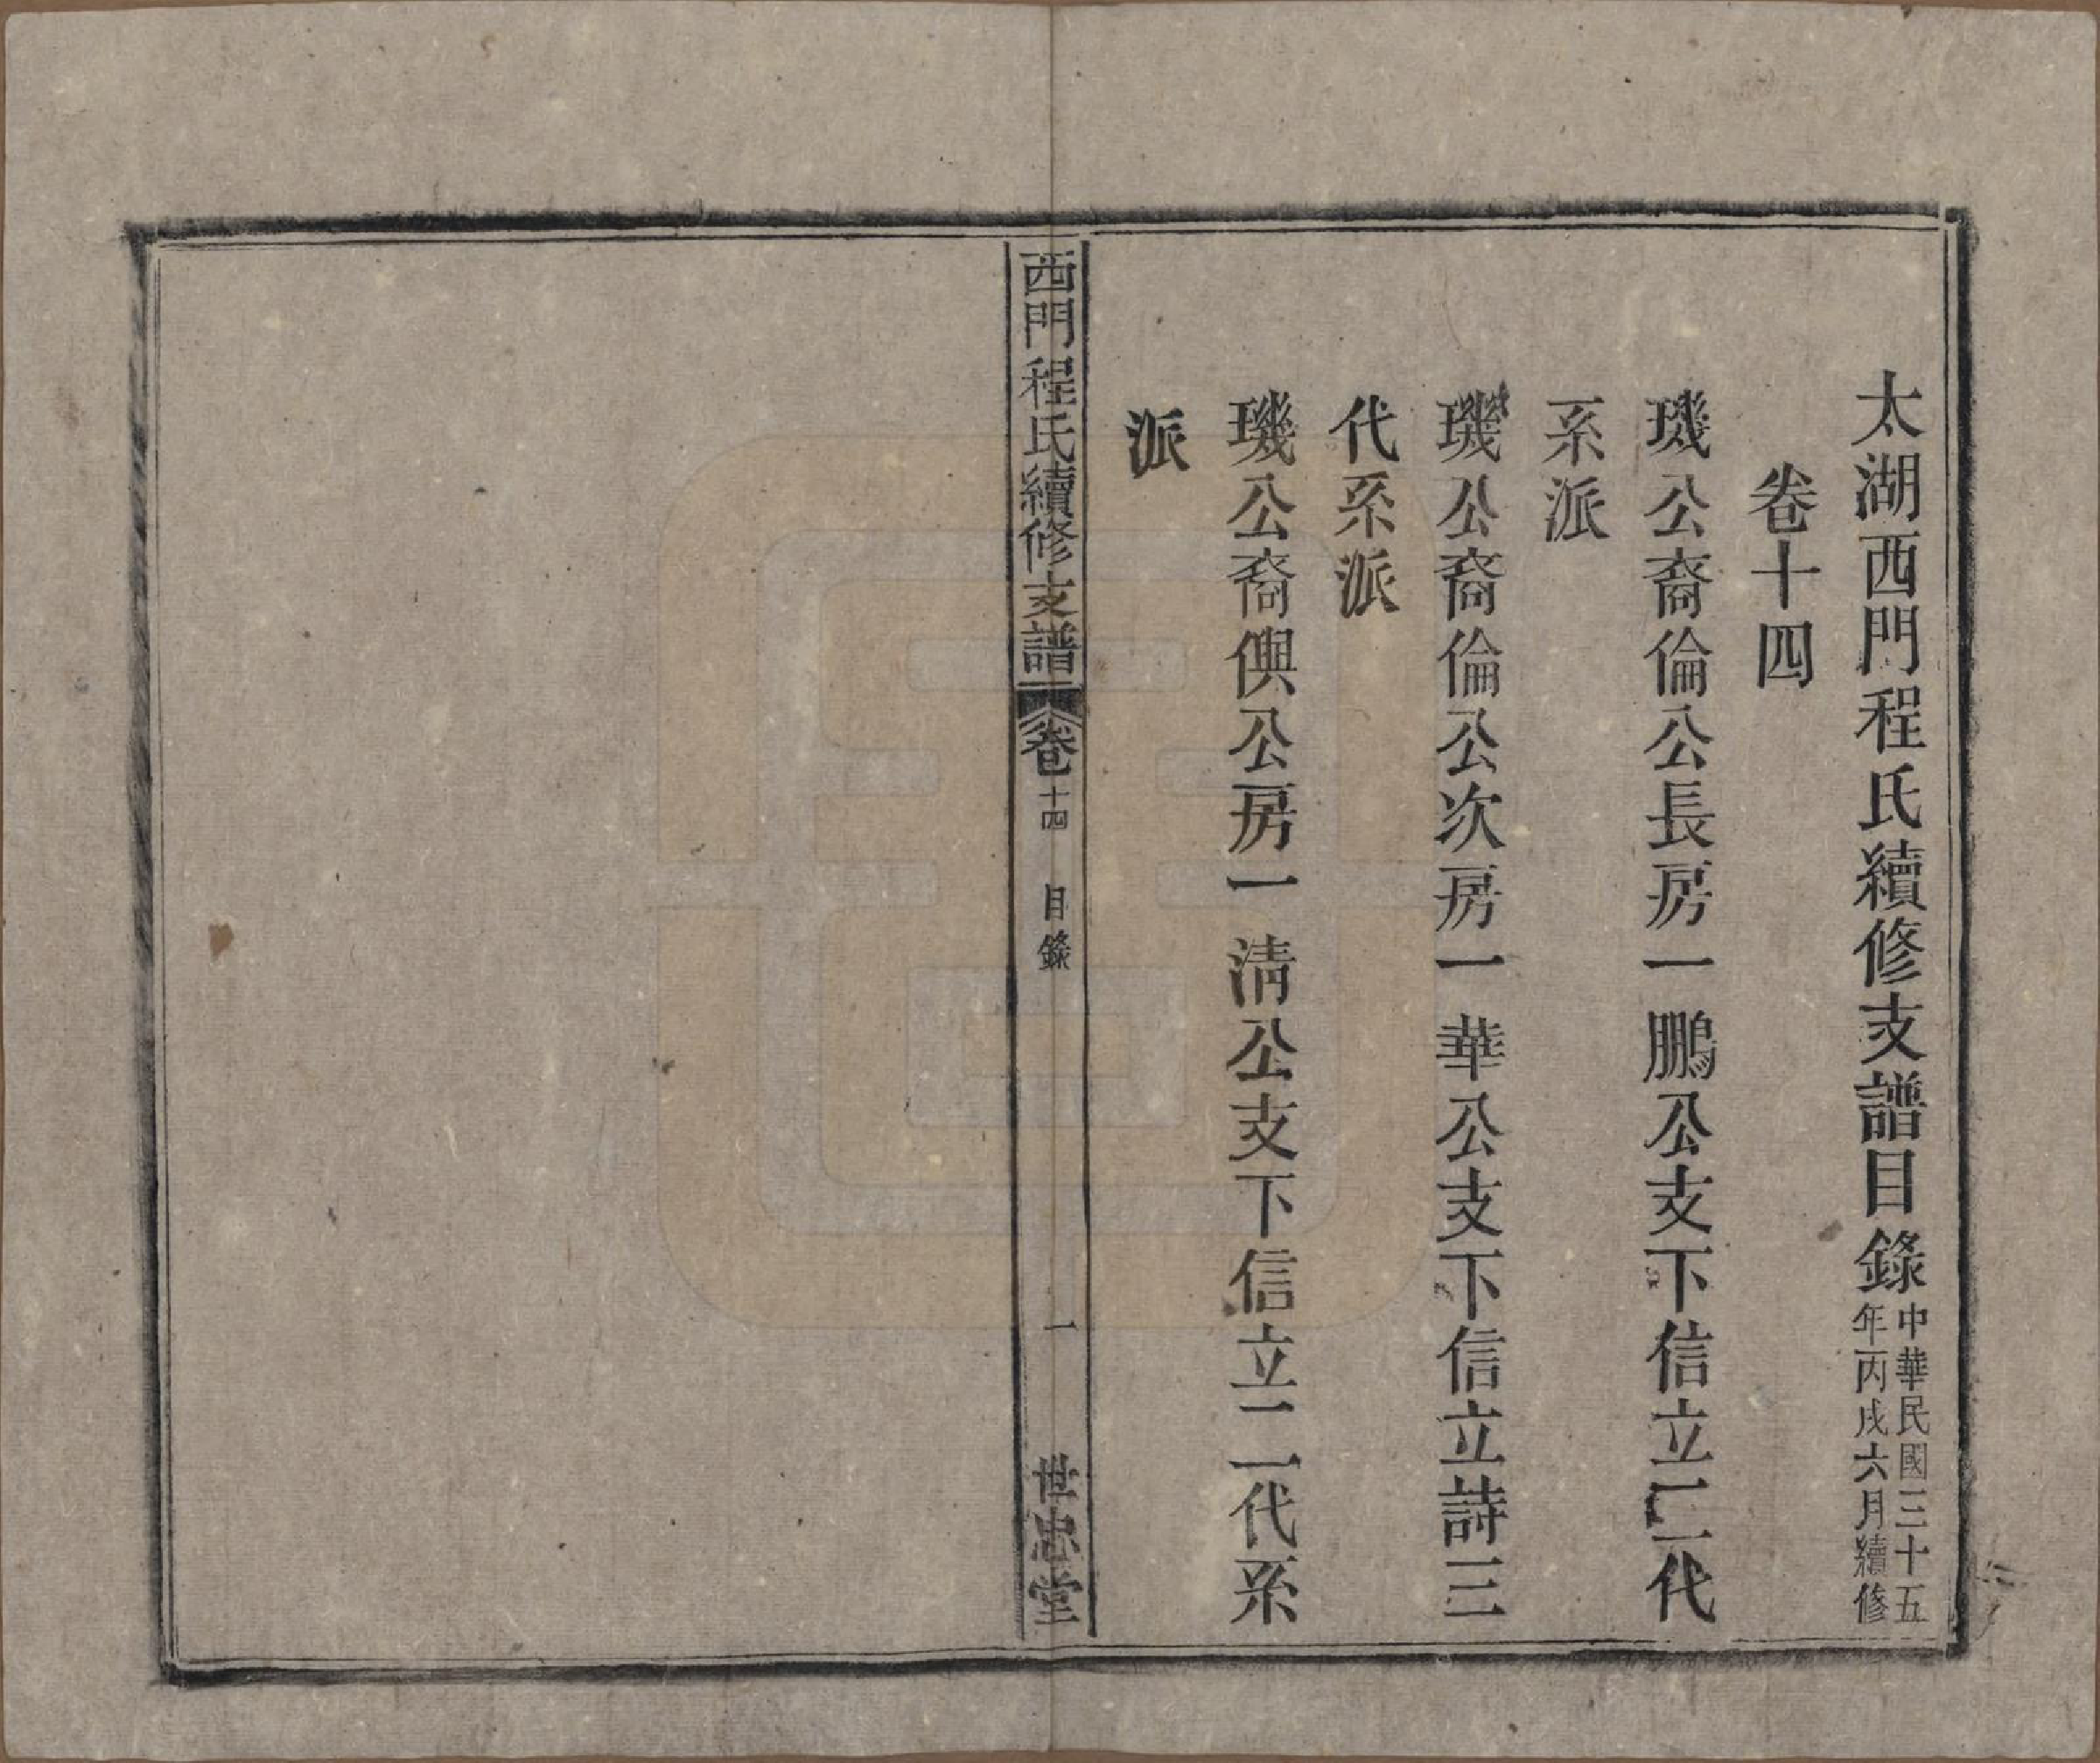 太湖西門程氏續修支譜目錄中華民國三十五年丙戌六月續修
卷十四
璣公裔倫公長房一鵬公支下信立二代
系派
璣公裔倫公次房一華公支下信立詩三
代系派
璣公裔傎公房一清公支下信立二代系
派
西門程氏續修支譜 卷十四 目錄 一 世忠堂